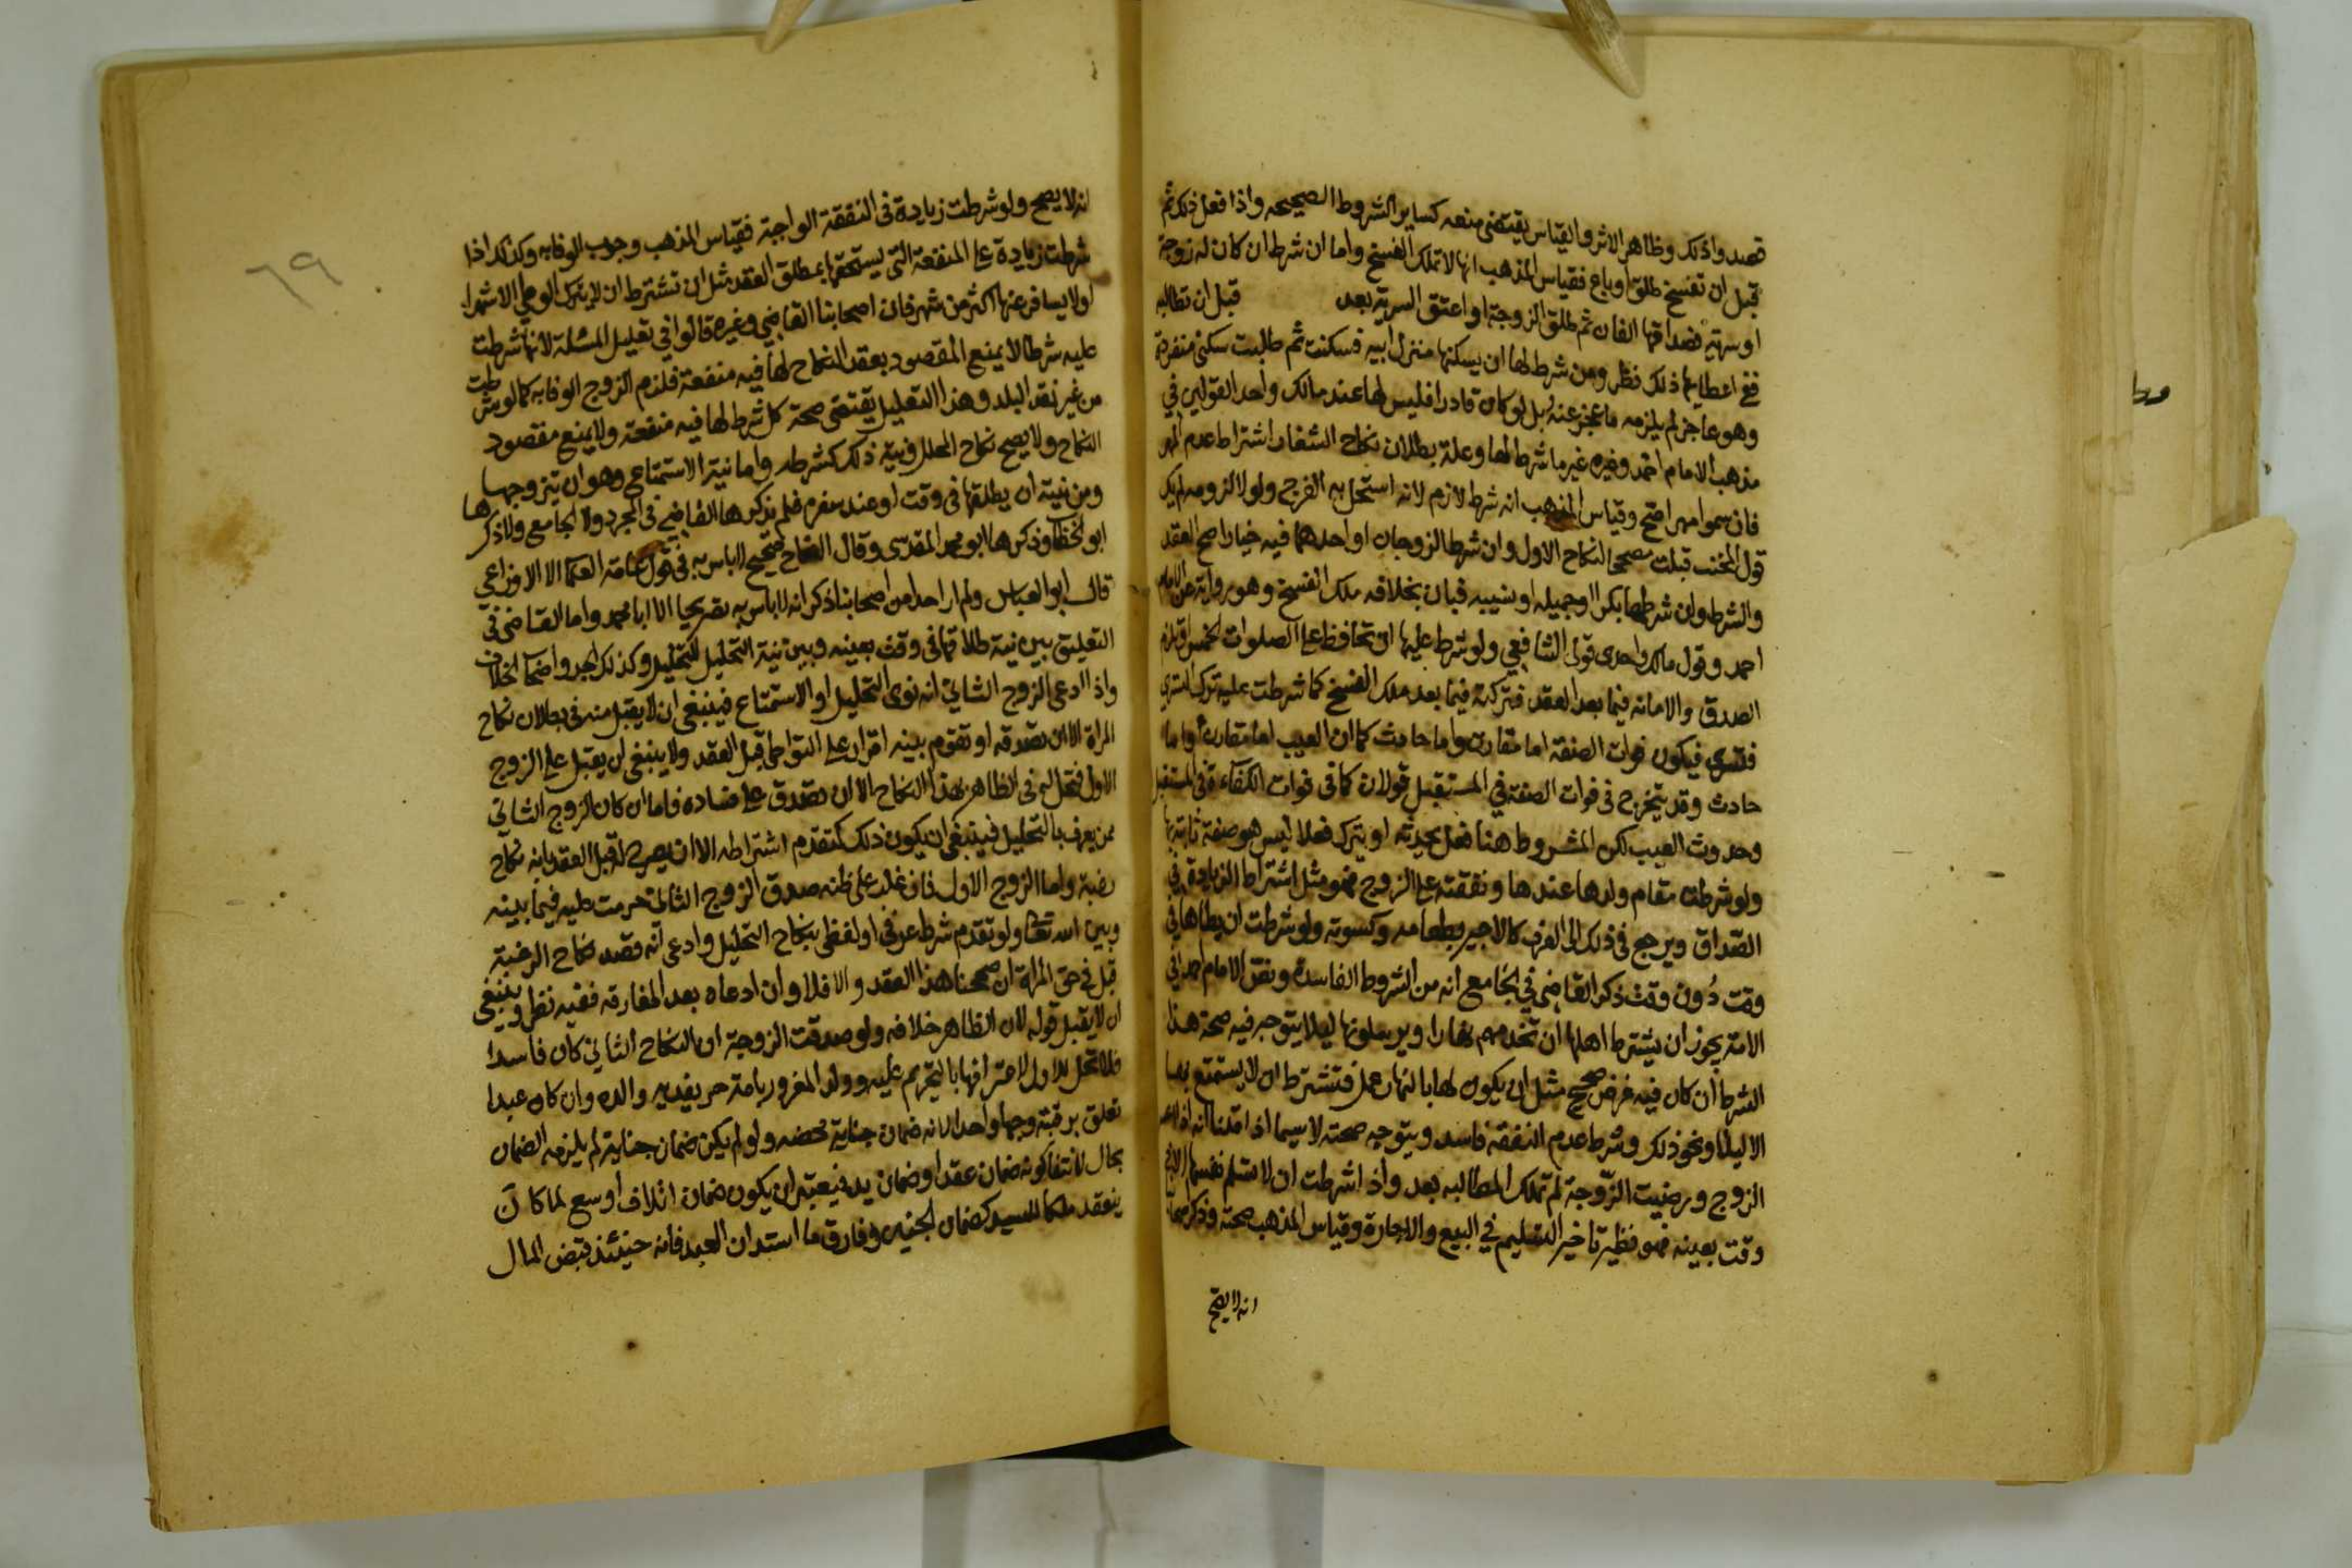 قصدوا ذلك وظاهر الاثر والقياس يقتضي منعه كساير الشروط الصحيحه واذا فعل ذلك ثم
قبل ان تفسخ طلق او باع فقياس المذهب انها لا تملك الفسخ واما ان شرط ان كان له زوجة
او سرية فصداقها الفان ثم طلق الزوجة او اعتق السرية بعد قبل ان تطالبه
ففي اعطايها ذلك نظر ومن شرط لها ان يسكنها منزل ابيه فسكنت ثم طالبت سكنى منفردة
وهو عاجز لم يلزمه ما عجز عنه بل لو كان قادرا فليس لها عند مالك واحد القولين في
مذهب الامام احمد وغيره غير ما شرط لها وعلة بطلان نكاح الشغار اشتراط عدم المهر
فان سموا مهرا صح وقياس المذهب انه شرط لازم لانه استحل به الفرج ولولا لزومه لم يكن
قول المجيب قبلت مصححا لنكاح الاول وان شرط الزوجان او احدهما فيه خيارا صح العقد
والشرط وان شرطها بكرا او جميله او ثيبه فبان بخلافه ملك الفسخ وهو رواية عن الامام
احمد وقول مالك واحدى قولي الشافعي ولو شرط عليها ان تحافظ على الصلوات الخمس او تلزم
الصدق والامانه فيما بعد العقد فتركته فيما بعد ملك الفسخ كما شرطت عليه ترك التسري
فتسرى فيكون فوات الصفة اما مقارن واما حادث كما ان العيب اما مقارن او اما
حادث وقد يتخرج في فوات الصفة في المستقبل قولان كما في فوات الكفاءة في المستقبل
وحدوث العيب لكن المشروط هنا فعل يحدثه او يترك فعلا ليس هو صفة ثابتة بها
ولو شرطت مقام ولدها عندها ونفقته على الزوج فهو مثل اشتراط الزيادة في
الصداق ويرجع في ذلك الى العرف كالاجير بطعامه وكسوته ولو شرطت ان يطاها في
وقت دون وقت ذكر القاضي في الجامع انه من الشروط الفاسدة ونص الامام احمد في
الامة يجوز ان يشترط اهلها ان تخدمهم نهارا ويرسلونها ليلا يتوجه فيه صحة هذا
الشرط ان كان فيه غرض صحيح مثل ان يكون لها بالنهار عمل فتشترط ان لا يستمتع بها
الا ليلا ونحو ذلك وشرط عدم النفقة فاسد ويتوجه صحته لاسيما اذا قلنا انه اذا اعسر
الزوج ورضيت الزوجة لم تملك المطالبه بعد واذا شرطت ان لا تسلم نفسها الا في
وقت بعينه فهو نظير تاخير التسليم في البيع والاجارة وقياس المذهب صحته وذكر اصحابنا
انه لا يصح
٦٩
انه لا يصح ولو شرطت زيادة في النفقة الواجبة فقياس المذهب وجوب الوفابه وكذلك اذا
شرطت زيادة على المنفعة التي يستحقها بمطلق العقد مثل ان تشترط ان لا يترك الوطي الا شهرا
او لا يسافر عنها اكثر من شهر فان اصحابنا القاضي وغيره قالوا في تعليل المسئلة لانها شرطت
عليه شرطا لا يمنع المقصود بعقد النكاح لها فيه منفعة فلزم الزوج الوفابه كما لو شرطت
من غير نقد البلد وهذا التعليل يقتضي صحة كل شرط لها فيه منفعة ولا يمنع مقصود
النكاح ولا يصح نكاح المحلل ونية ذلك كشرطه واما نية الاستمتاع وهو ان يتزوجها
ومن نيته ان يطلقها في وقت او عند سفره فلم يذكرها القاضي في المجرد ولا الجامع ولا ذكرها
ابو الخطاب وذكرها ابو محمد المقدسي وقال النكاح صحيح لا باس به في قول عامة العلما الا الاوزاعي
قال ابو العباس ولم ار احدا من اصحابنا ذكر انه لا باس به تصريحا الا ابا محمد واما القاضي في
التعليق بين نية طلاقها في وقت بعينه وبين نية التحليل وكذلك الجد واصحاب الخلاف
واذا ادعى الزوج الثاني انه نوى التحليل او الاستمتاع فينبغي ان لا يقبل منه في بطلان نكاح
المراة الا ان تصدقه او تقوم بينه اقرار على التواطي قبل العقد ولا ينبغي ان يقبل على الزوج
الاول فتحل له في الظاهر بهذا النكاح الا ان يصدق على فساده فاما ان كان الزوج الثاني
ممن يعرف بالتحليل فينبغي ان يكون ذلك كتقدم اشتراطه الا ان يصرح له قبل العقد بانه نكاح
رغبة واما الزوج الاول فان غلب على ظنه صدق الزوج الثاني حرمت عليه فيما بينه
وبين الله تعالى ولو تقدم شرط عرفي او لفظي بنكاح التحليل وادعى انه قصد نكاح الرغبة
قبل في حق المراة ان صححنا هذا العقد والا فلا وان ادعاه بعد المفارقه ففيه نظر وينبغي
ان لا يقبل قوله لان الظاهر خلافه ولو صدقت الزوجة ان النكاح الثاني كان فاسدا
فلا تحل للاول لاعترافها بالتحريم عليه وولد المغرور بامة حر يفديه والده وان كان عبدا
تعلق برقبته وجها واحدا لانه ضمان جناية محضه ولو لم يكن ضمان جناية لم يلزمه الضمان
بحال لانتفا كونه ضمان عقد او ضمان يد فيعتبر ان يكون ضمان اتلاف اوسع لما كان
ينعقد ملكا للسيد كضمان الجنين وفارق ما استدان العبد فانه حينئذ قبض المال